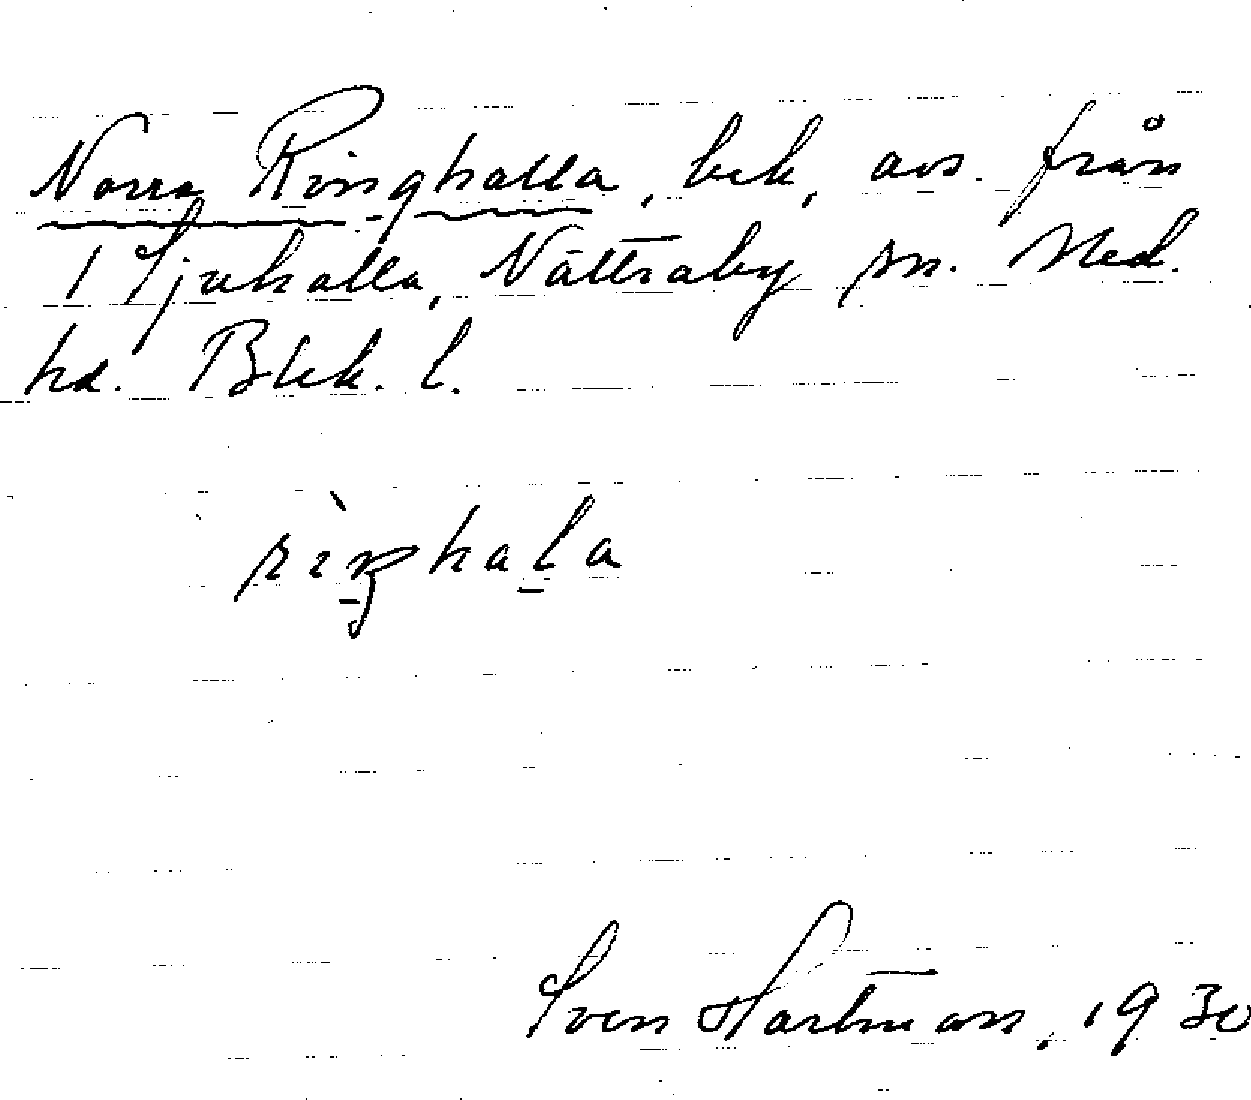 Norra Ringhalla, beb, avs. från
1 Sjuhalla, Nättraby sn. Med.
hd. Blek. l.
rìŋhala
Sven Hartman, 1930